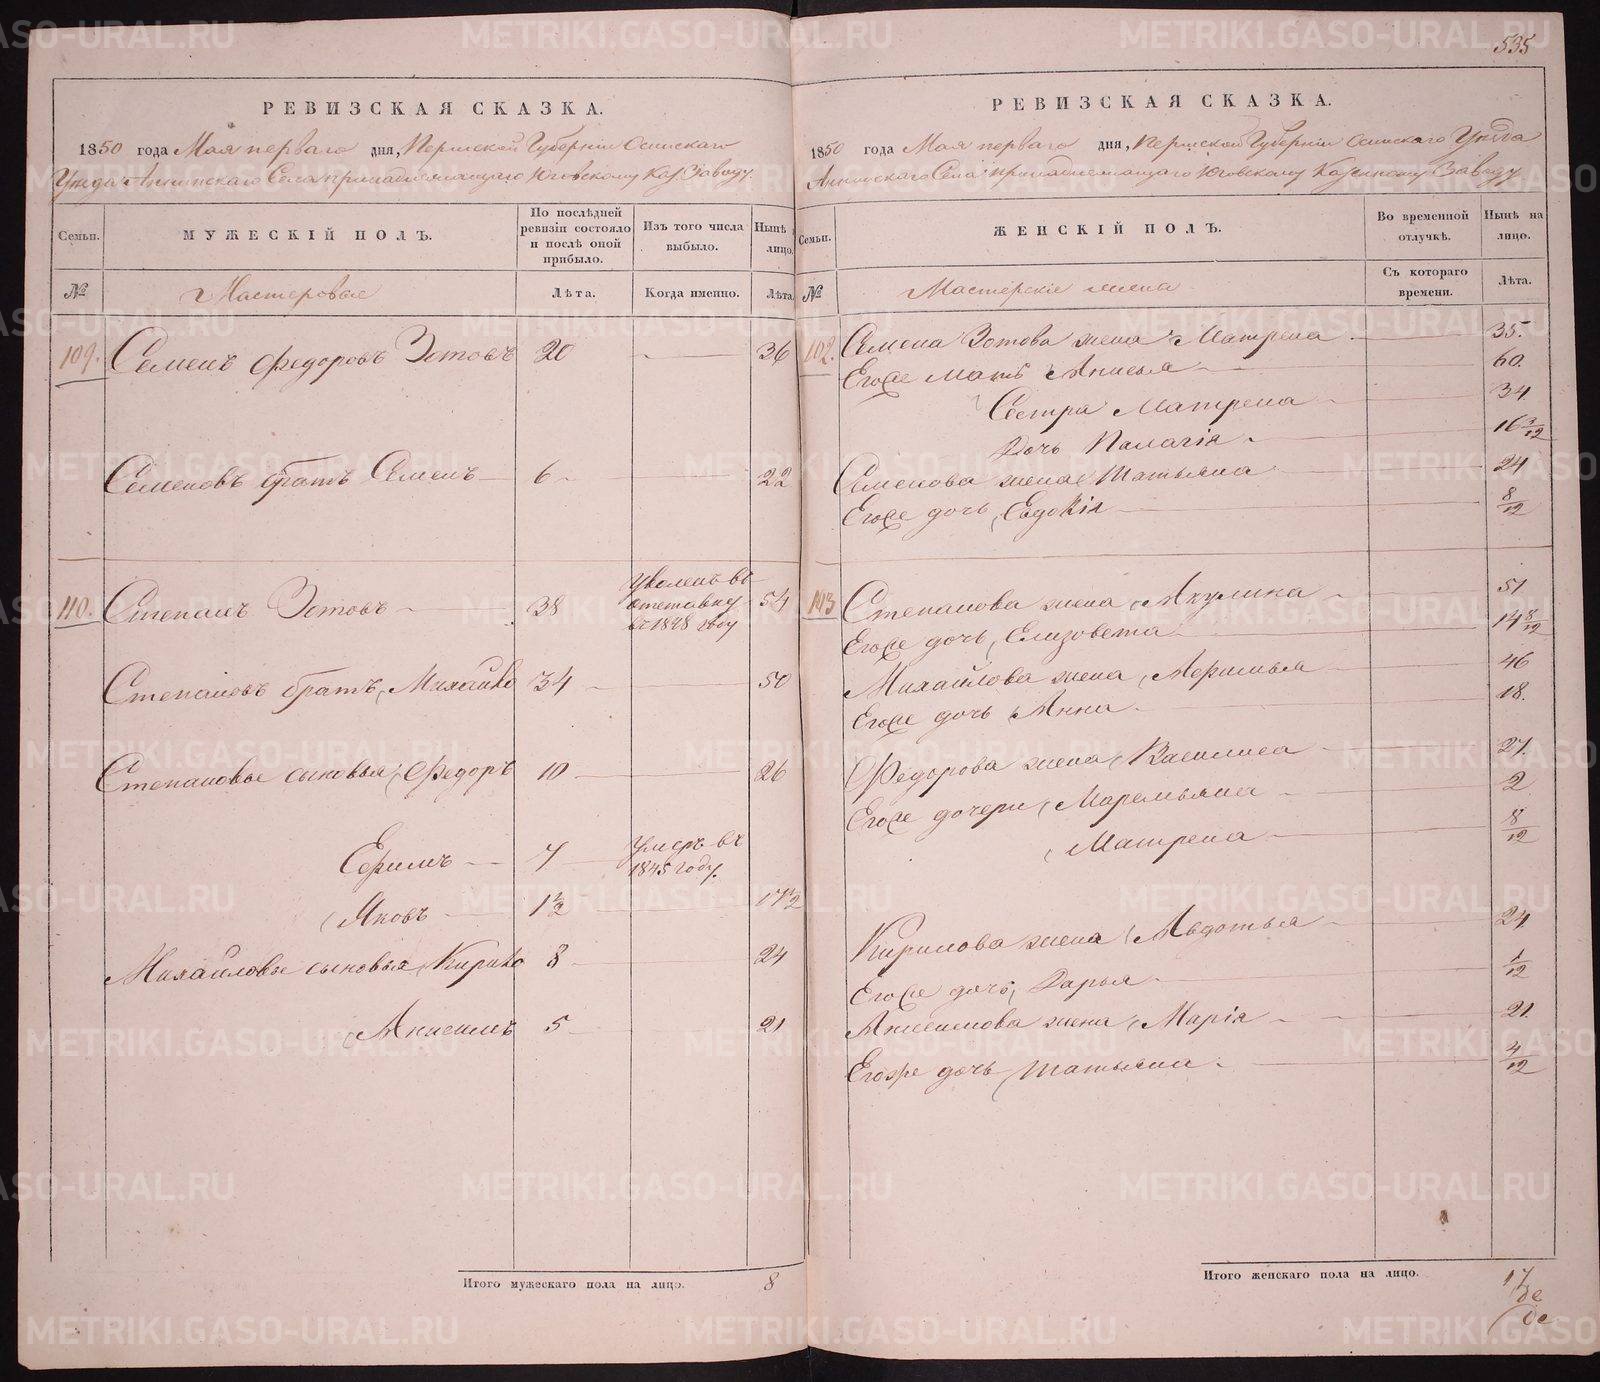 535
РЕВИЗСКАЯ СКАЗКА.
1850 года Мая перваго дня, Пермской Губерніи Осинскаго
Уезда Аннинскаго Села принадлежащаго Юговскому Каз. Заводу.
Семьи.
МУЖЕСКІЙ ПОЛЪ.
По послѣдней ревизіи состояло и послѣ оной прибыло.
Изъ того числа выбыло.
Нынѣ лицо.
№
Мастеровые
Лѣта.
Когда именно.
Лѣта.
109. Семенъ Федоровъ Зотовъ 20 36
Семеновъ братъ Семенъ 6 22
110. Степанъ Зотовъ 38 Уволенъ въ отставку въ 1848 году 54
Степановъ братъ, Михайло 34 50
Степановы сыновья, Федоръ 10 26
Ефимъ 7 Умеръ въ 1845 году.
Яковъ 1½ 17½
Михайловы сыновья, Кирило 8 24
Анисимъ 5 21
Итого мужескаго пола на лицо. 8
РЕВИЗСКАЯ СКАЗКА.
1850 года Мая перваго дня, Пермской Губерніи Осинскаго Уезда
Аннинскаго Села принадлежащаго Юговскому Казенному Заводу
Семьи.
ЖЕНСКІЙ ПОЛЪ.
Во временной отлучкѣ.
Нынѣ на лицо.
№
Мастерскіе жены
Съ котораго времени.
Лѣта.
102. Семена Зотова жена Матрена 35.
Егоже мать Анисья 60.
Сестра Матрена 34
Дочь Палагія 16 3/12
Семенова жена Татьяна 24
Егоже дочь, Евдокія 8/12
103 Степанова жена, Акулина 51
Егоже дочь, Елизовета 14 8/12
Михайлова жена, Мернья 46
Егоже дочь Анна 18.
Федорова жена, Василиса 27.
Егоже дочери, Маремьяна 2
Матрена 8/12
Кирилова жена Авдотья 24
Егоже дочь, Дарья 1/12
Анисимова жена, Марія 21.
Егоже дочь Татьяна 4/12
Итого женскаго пола на лицо. 17
METRIKI.GASO-URAL.RU